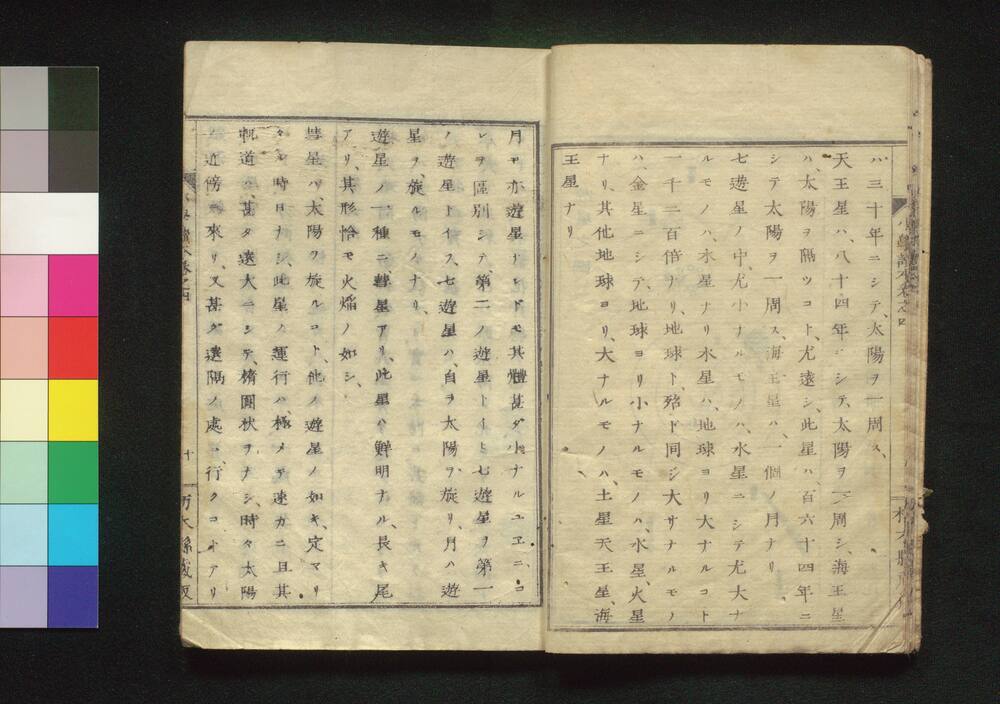 ハ、三十年ニシテ、太陽ヲ一周ス、
天王星ハ、八十四年ニシテ、太陽ヲ一周シ、海王星
ハ、太陽ヲ隔ツコト、尤遠シ、此星ハ、百六十四年ニ
シテ太陽ヲ一周ス、海王星ハ、一個ノ月ナリ
七遊星ノ中、尤小ナルモノハ、水星ニシテ尤大ナ
ルモノハ、木星ナリ木星ハ、地球ヨリ大ナルコト
一千二百倍ナリ、地球ト、殆ド同シ大サナルモノ
ハ、金星ニシテ、地球ヨリ小ナルモノハ、水星、火星
ナリ、其他地球ヨリ、大ナルモノハ、土星天王星、海
王星ナリ
月モ亦遊星ナレドモ其體甚ダ小ナルユヱニ、コ
レヲ區別シテ、第二ノ遊星トイヒ七遊星ヲ第一
ノ遊星トイス、七遊星ハ、自ヲ太陽ヲ、旋リ、月ハ遊
星ヲ、旋ルモノナリ、
遊星ノ一種ニ、彗星アリ、此星ハ鮮明ナル、長キ尾
アリ、其形恰モ火焔ノ如シ、
彗星ハ、太陽ヲ旋ルコト、他ノ遊星ノ如キ、定マリ
タル時日ナシ、此星ノ運行ハ、極メテ速カニ且其
軌道ハ、甚タ遠大ニシテ、楕圓狀ヲナシ、時々太陽
ノ近傍ニ來リ、又甚ダ遠隔ノ處ニ行クコトアリ
十